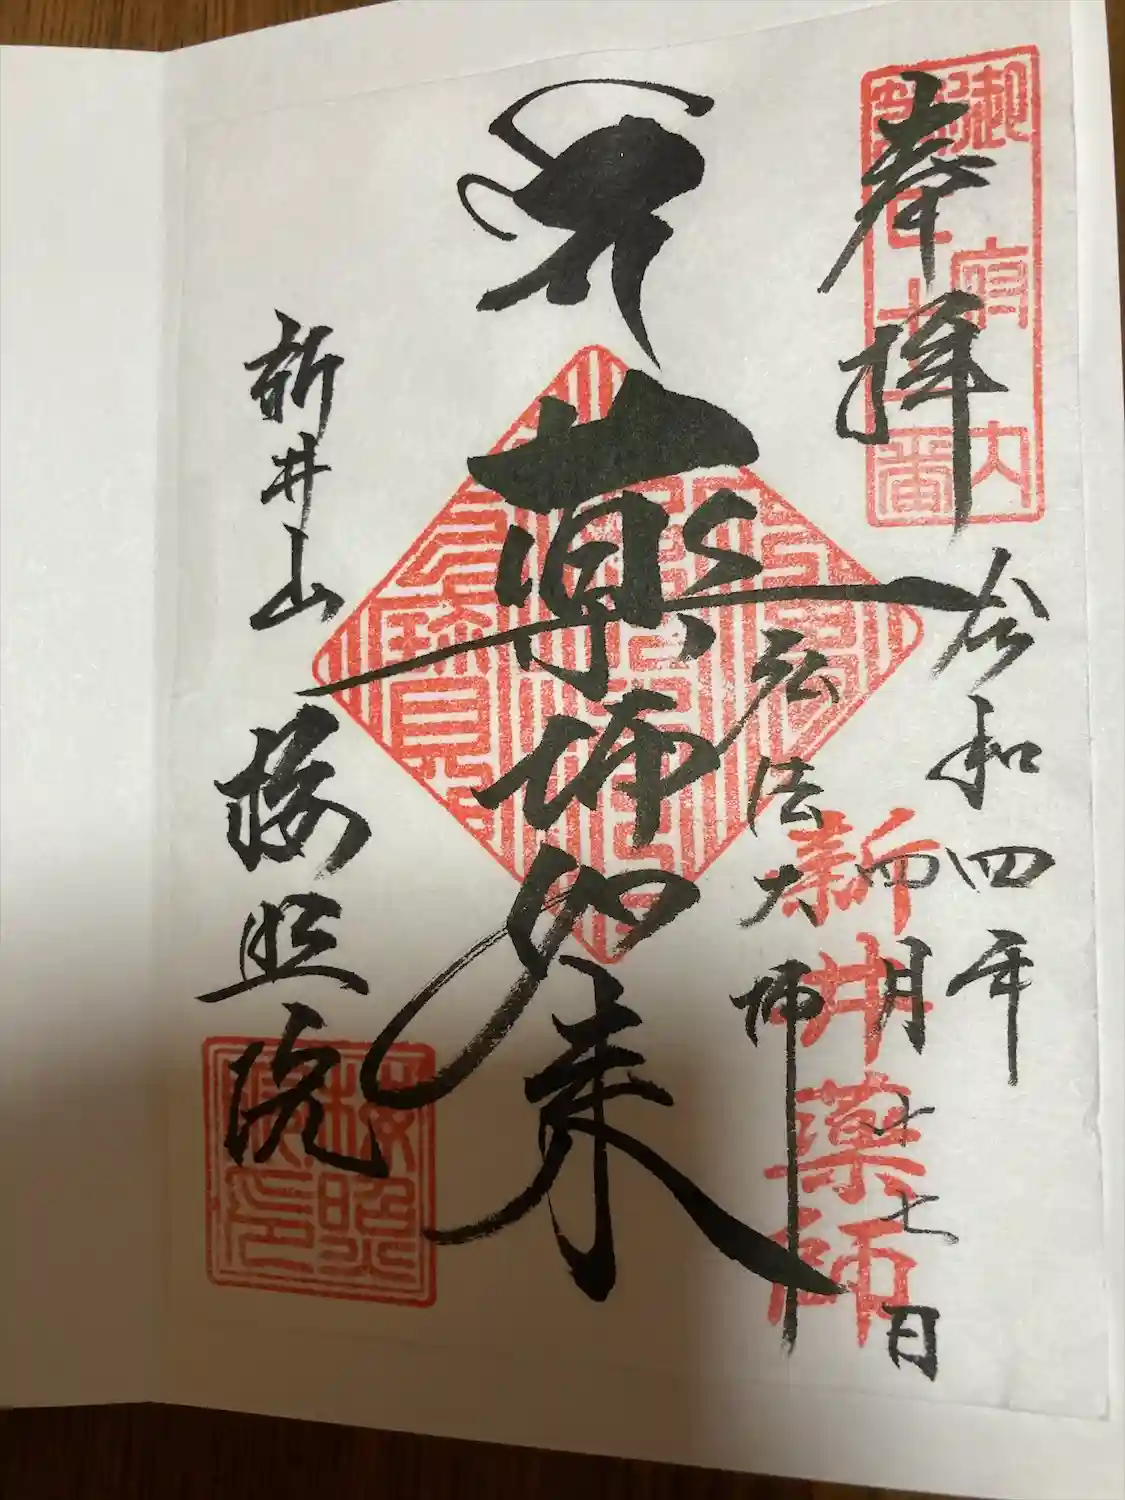 奉拝
令和四年
四月十七日
新井薬師
弘法大師
薬師如来
新井山
梅照院
御府内